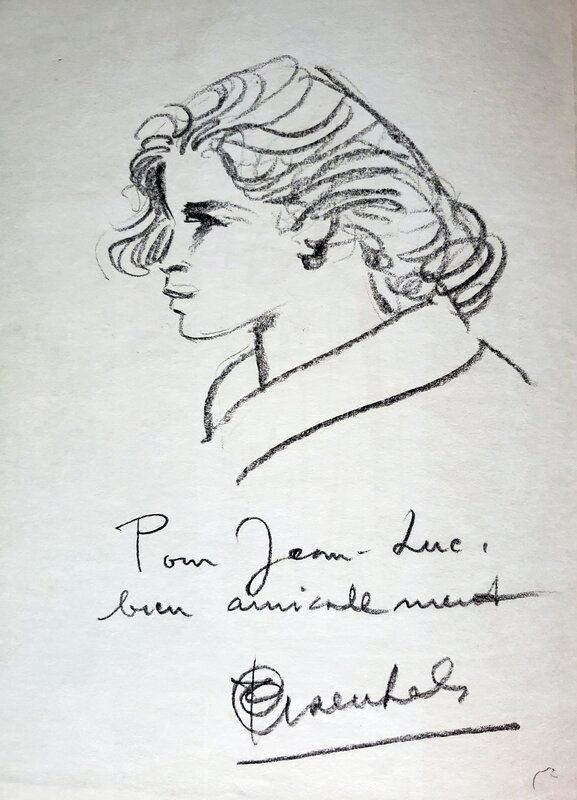 Pour Jean-Luc.
bien amicalement